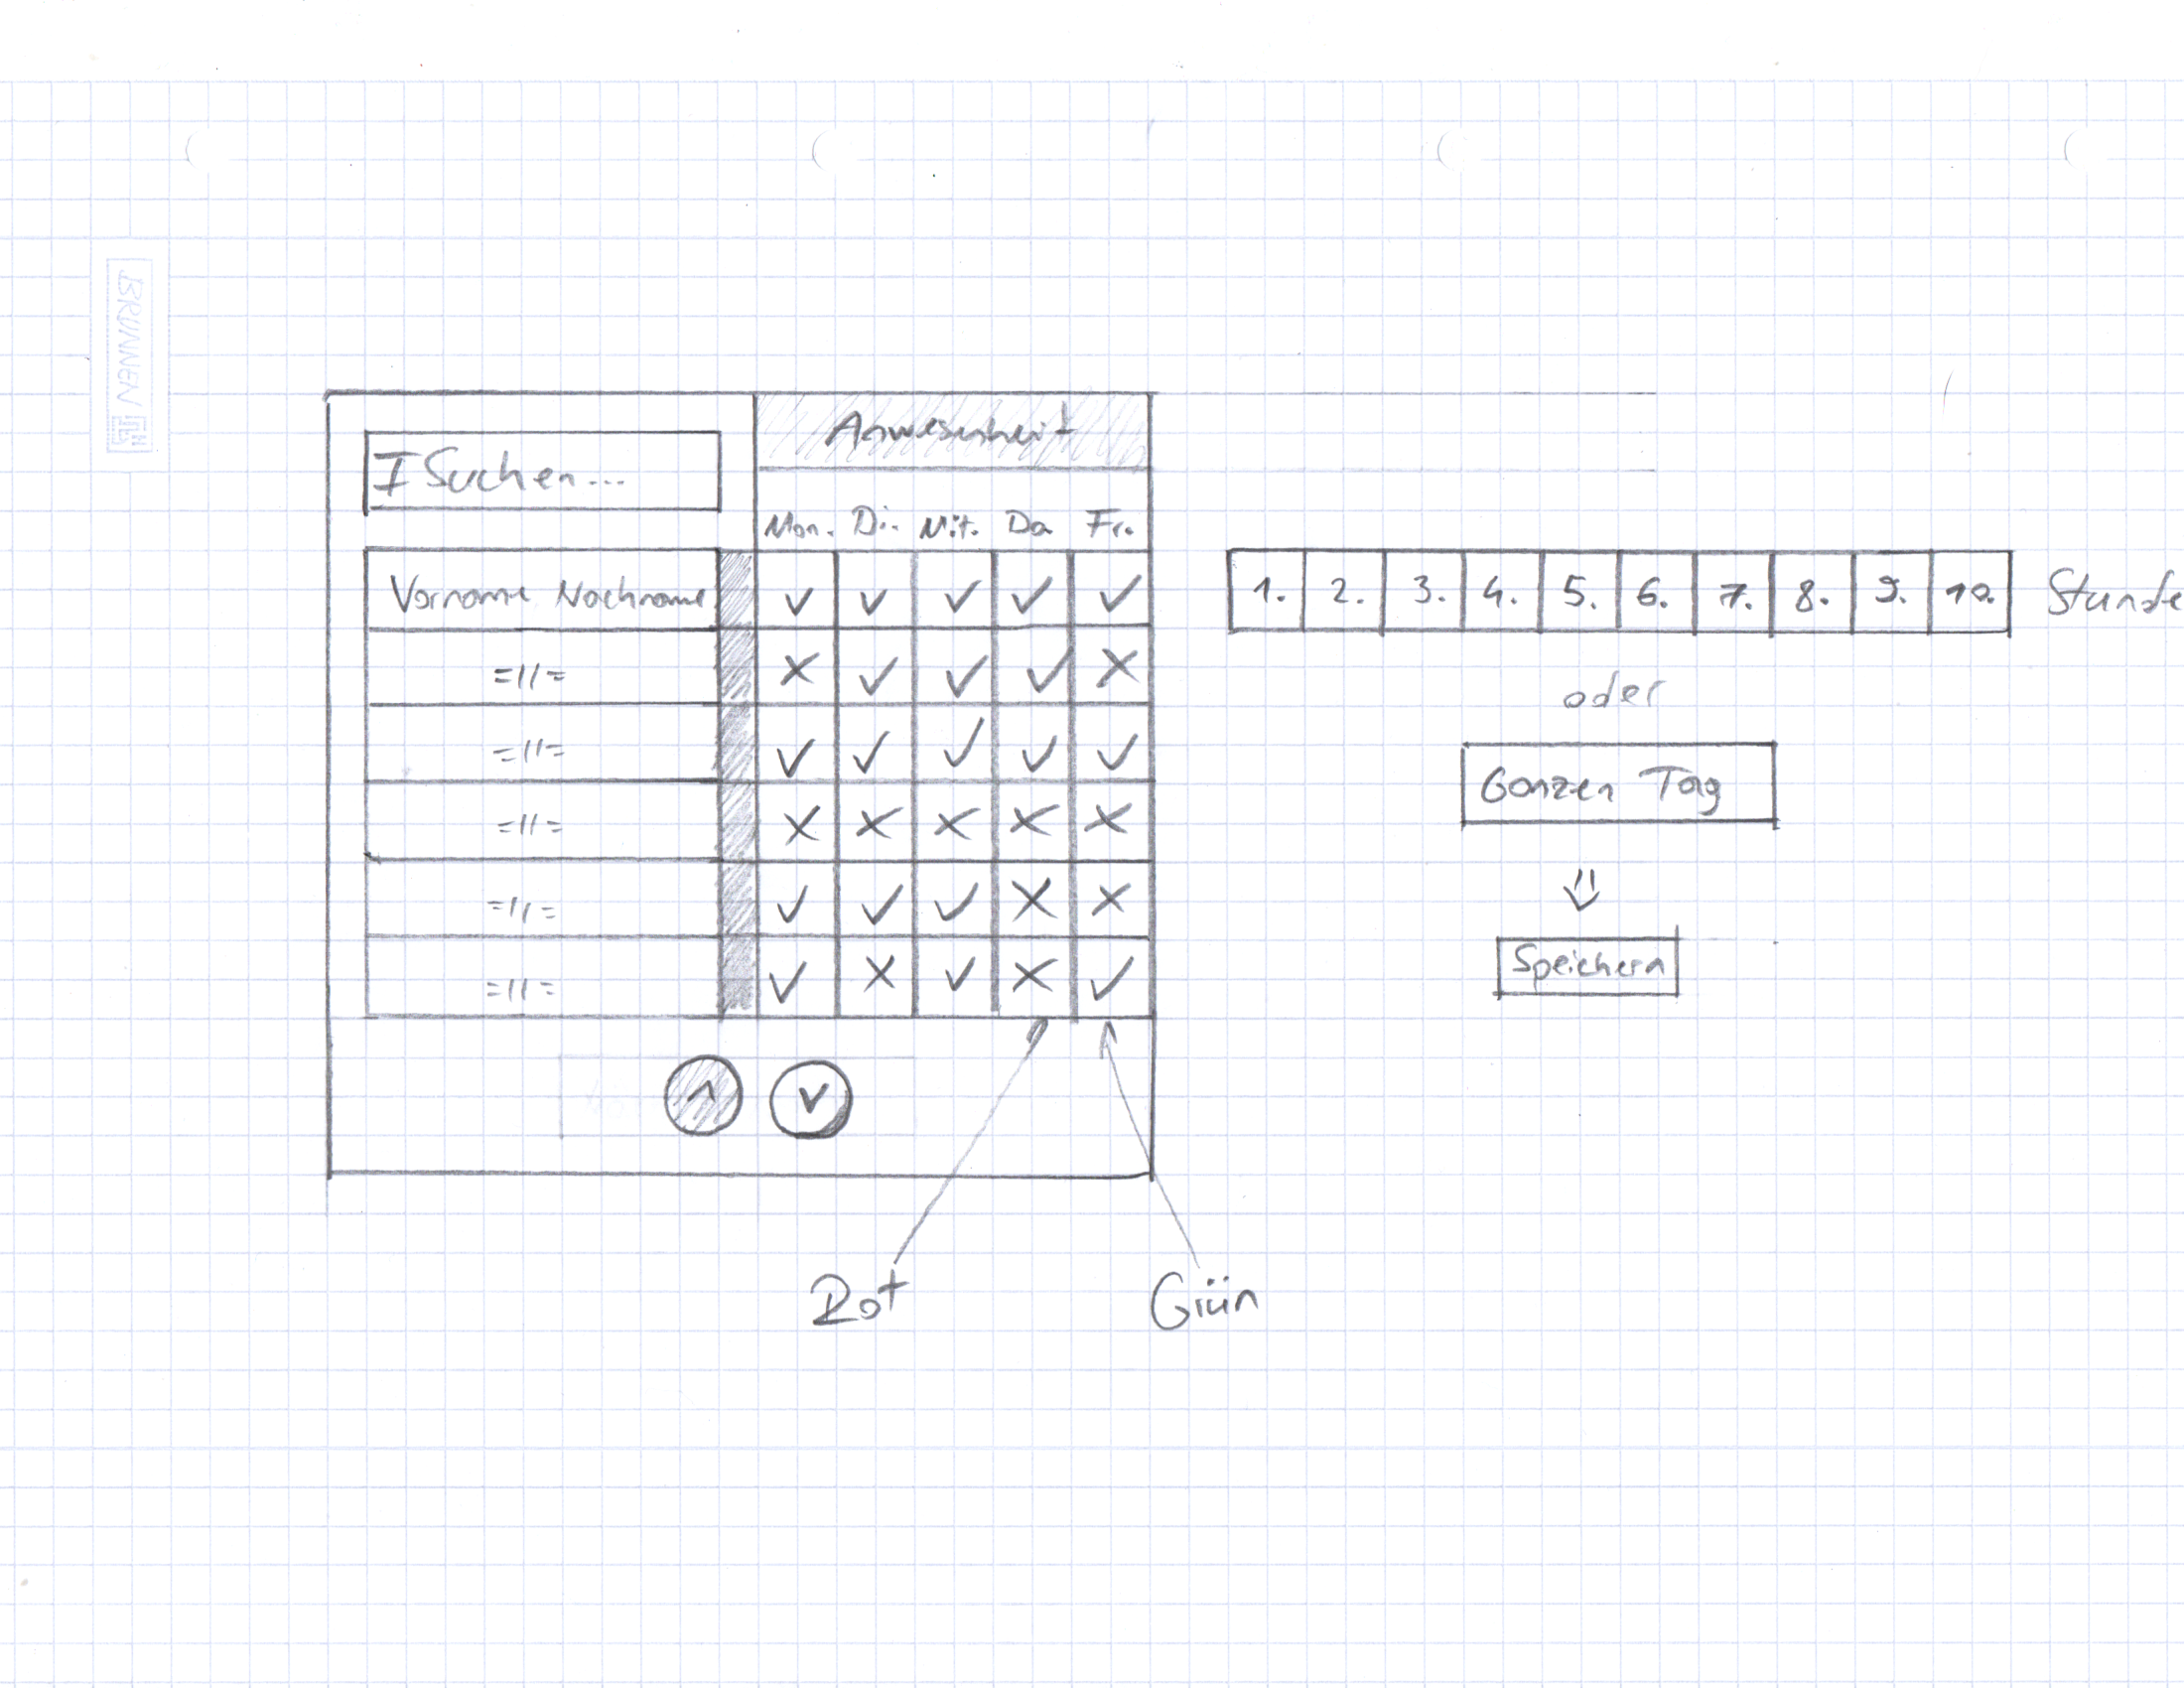 BRUNNEN
Anwesenheit
I Suchen...
Mon. Di. Mit. Do Fr.
Vorname Nachname ✓ ✓ ✓ ✓ ✓
=//= ✗ ✓ ✓ ✓ ✗
=//= ✓ ✓ ✓ ✓ ✓
=//= ✗ ✗ ✗ ✗ ✗
=//= ✓ ✓ ✓ ✗ ✗
=//= ✓ ✗ ✓ ✗ ✓
Rot Grün
1. 2. 3. 4. 5. 6. 7. 8. 9. 10. Stunde
oder
Ganzen Tag
Speichern